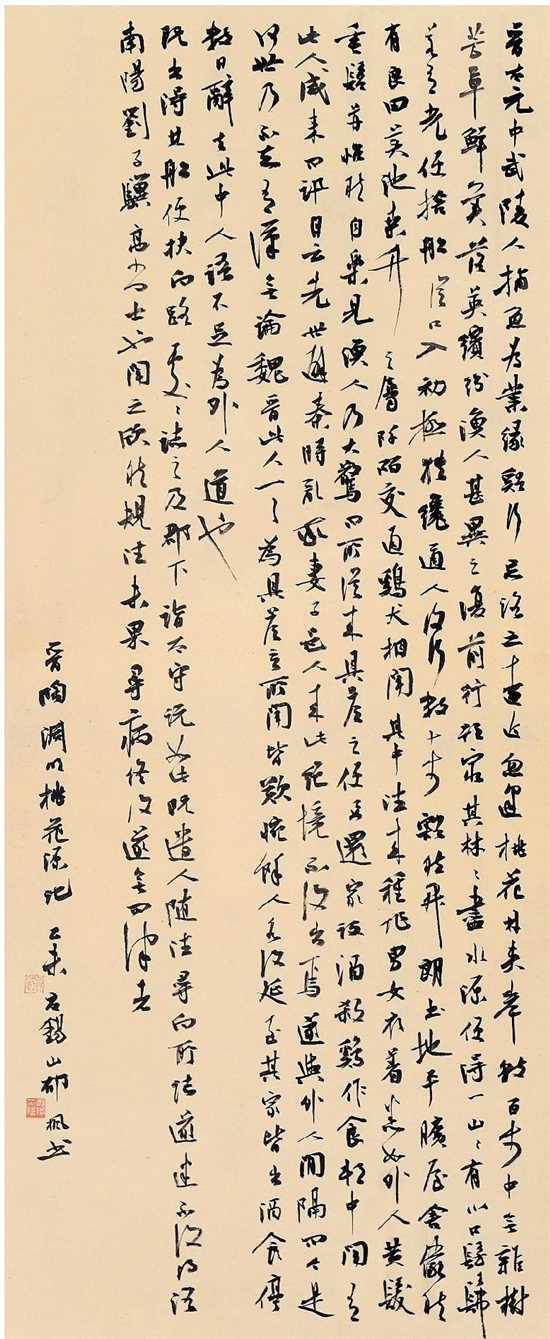 晉太元中武陵人捕魚為業緣谿行忘路之遠近忽逢桃花林夾岸數百步中無雜樹
芳草鮮美落英繽紛漁人甚異之復前行欲窮其林々盡水源便得一山々有小口髣髴
若有光便捨船從口入初極狹纔通人復行數十步豁然開朗土地平曠屋舍儼然
有良田美池桑竹之屬阡陌交通鷄犬相聞其中往來種作男女衣着悉如外人黃髮
垂髫並怡然自樂見漁人乃大驚問所從來具答之便要還家設酒殺鷄作食村中聞有
此人咸來問訊自云先世避秦時亂率妻子邑人來此絕境不復出焉遂與外人間隔問今是
何世乃不知有漢無論魏晉此人一一為具答言所聞皆歎惋餘人各復延至其家皆出酒食停
數日辭去此中人語不足為外人道也
既出得其船便扶向路處々誌之及郡下詣太守說如此既遣人隨往尋向所誌遂迷不復得路
南陽劉子驥高尚士也聞之欣然規往未果尋病終後遂無問津者
晉陶淵明桃花源記 乙未 古錫山郁楓書